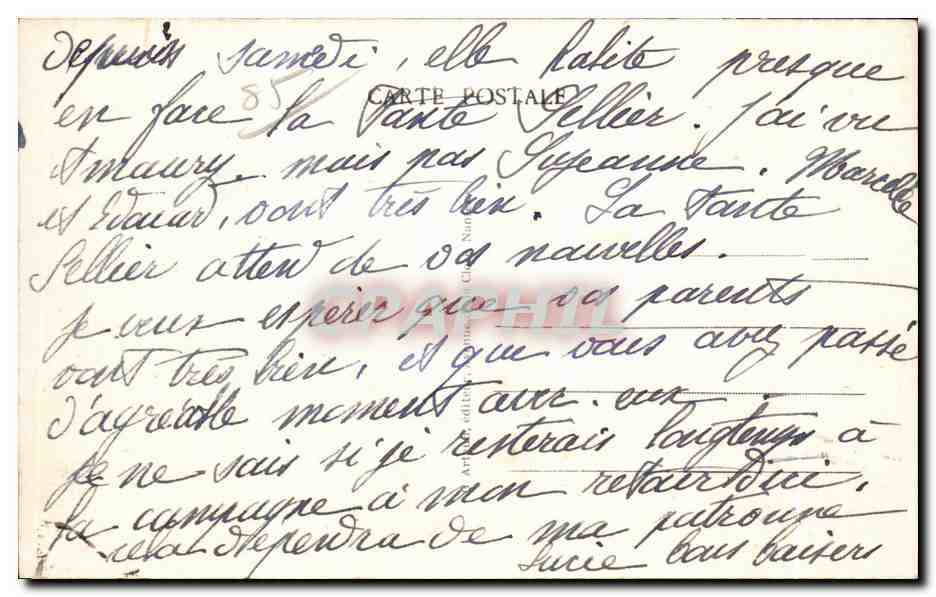 depuis samedi, elle habite presque
85
CARTE POSTALE
en face la Tante Sellier. J'ai vu
Amaury, mais pas Suzanne. Marcelle
et Edouard, vont très bien. La Tante
Sellier attend de vos nouvelles.
je veux espérer que vos parents
vont très bien, et que vous avez passé
d'agréable moment avec eux.
je ne sais si je resterais longtemps à
la campagne à mon retour d'ici,
cela dependra de ma patronne
Lucie bons baisers
CPAPHIL